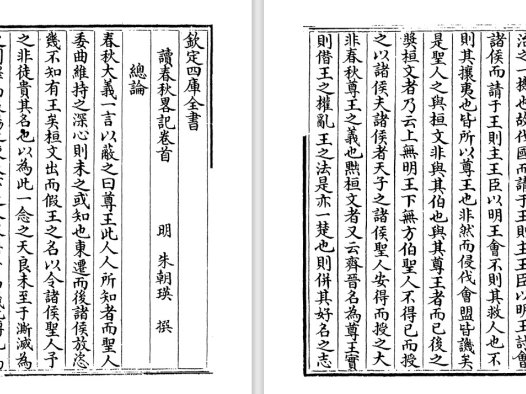 欽定四庫全書
讀春秋畧記卷首　明　朱朝瑛　撰
總論
春秋大義一言以蔽之曰尊王此人人所知者而聖人
委曲維持之深心則未之或知也東遷而後諸侯放恣
幾不知有王矣桓文出而假王之名以令諸侯聖人予
之非徒貴其名也以為此一念之天良未至于澌滅為
治之一機也故伐國而請于王則主王臣以明王討會
諸侯而請于王則主王臣以明王會不則其救人也不
則其攘夷也皆所以尊王也非然而侵伐會盟皆譏矣
是聖人之與桓文非與其伯也與其尊王者而已後之
獎桓文者乃云上無明王下無方伯聖人不得已而授
之以諸侯夫諸侯者天子之諸侯聖人安得而授之大
非春秋尊王之義也黜桓文者又云齊晉名為尊王實
則借王之權亂王之法是亦一楚也則併其好名之志